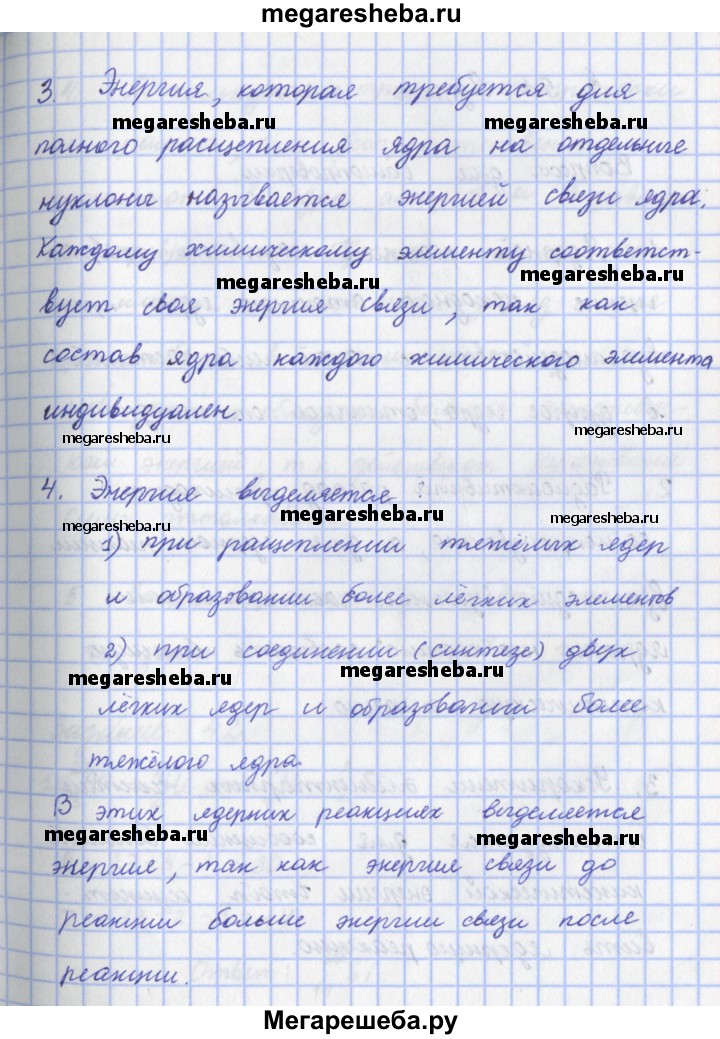 megaresheba.ru
3. Энергия, которая требуется для
megaresheba.ru megaresheba.ru
полного расщепления ядра на отдельные
нуклоны называется энергией связи ядра.
Каждому химическому элементу соответст-
megaresheba.ru megaresheba.ru
вует своя энергия связи, так как
состав ядра каждого химического элемента
индивидуален.
megaresheba.ru megaresheba.ru
4. Энергия выделяется :
megaresheba.ru megaresheba.ru megaresheba.ru
1) при ращеплении тяжёлых ядер
и образовании более лёгких элементов
2) при соединении (синтезе) двух
megaresheba.ru megaresheba.ru
лёгких ядер и образовании более
тяжёлого ядра.
В этих ядерних реакциях выделяется
megaresheba.ru megaresheba.ru
энергия, так как энергия связи до
реакции больше энергии связи после
реакции.
Мегарешеба.ру